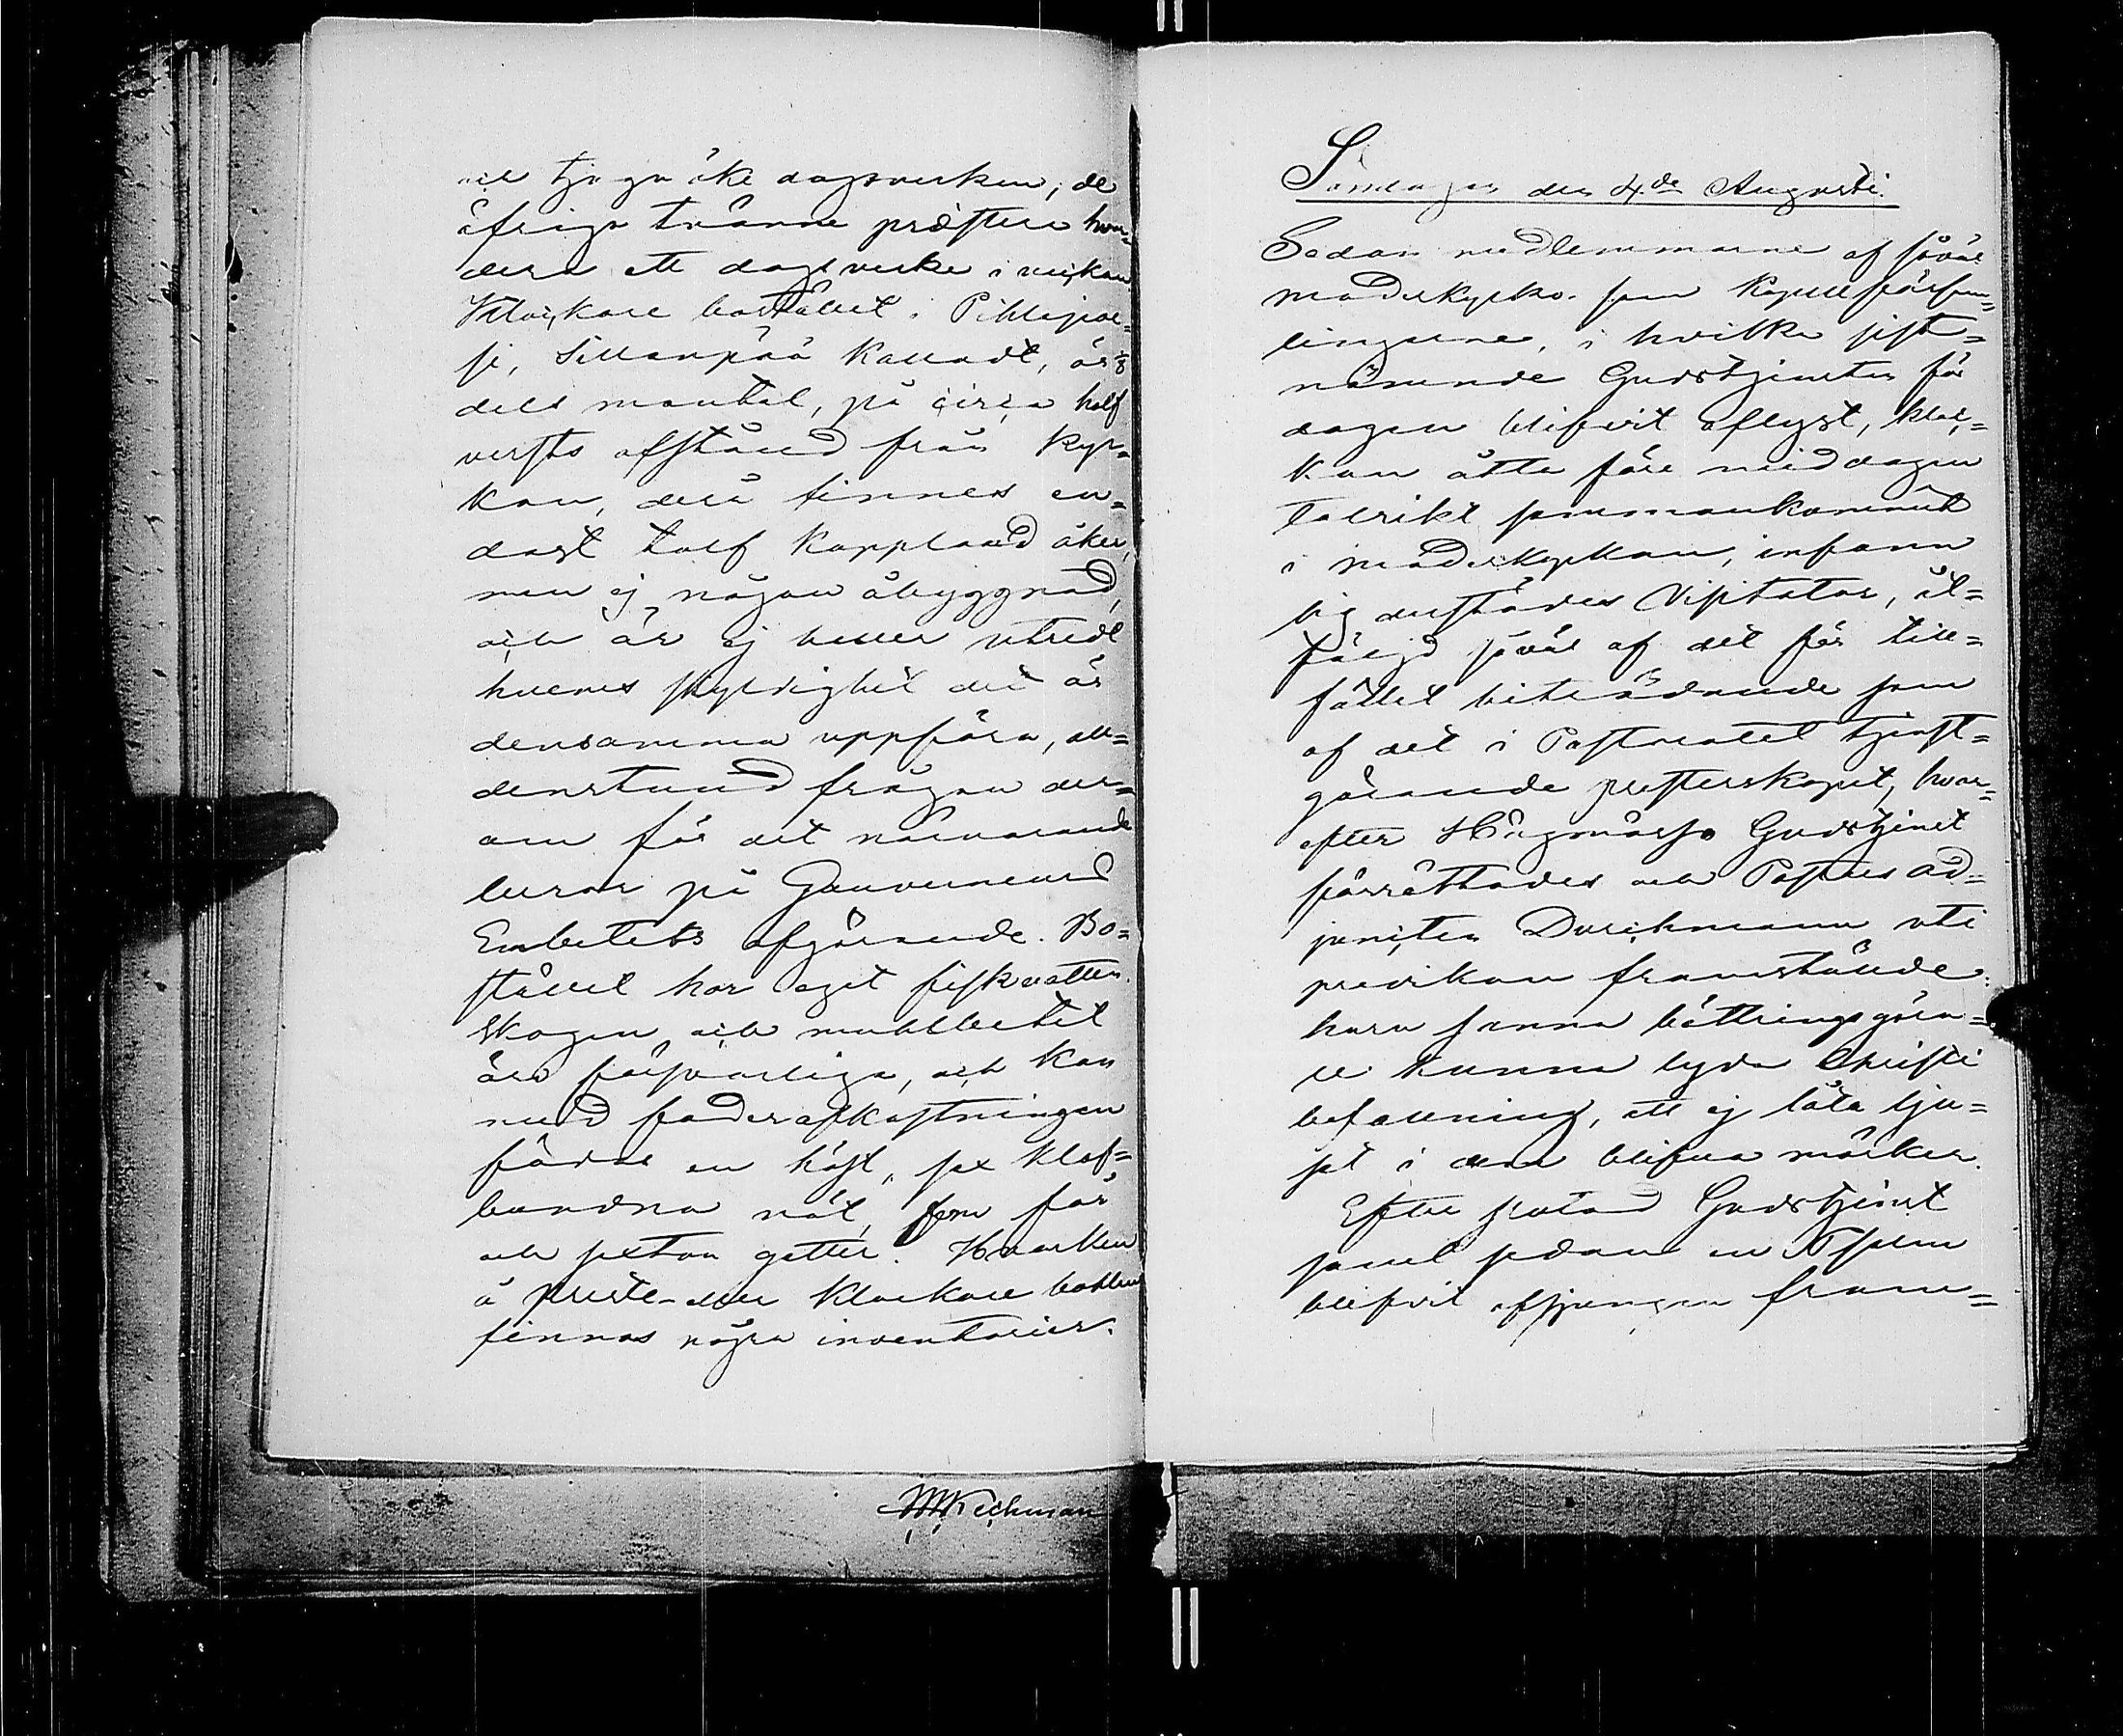 och tjugo öke dagsverken; de
öfriga tvänne prester hvar=
dera ett dagsverke i veckan.
Klockare bostället i Pihlajave=
si, Sillanpää kalladt, är 1/8
dels mantal, på circa half
versts afstånd från kyr=
kan, derå finnes en=
dast tolf kappland åker,
men ej någon åbyggnad,
och är ej heller utredt
hvems skyldighet det är
densamma uppföra, all=
denstund frågan der=
om för det närvarande
beror på Gouverneurs
Embetets afgörande. Bo=
stället har eget fiskvatten.
Skogen och muhlbetet
äro försvarliga, och kan
med foderafkastningen
födas en häst, sex klaf=
bundna nöt, fem får
och sexton getter. Hvarken
å Preste- eller Klockare bohlen
finnas några inventarier.
Söndagen den 4.de Augusti.
Sedan medlemmarne af såväl
moderkyrko- som kapellförsam=
lingarne, i hvilka sist=
nämnde Gudstjensten för
dagen blifvit aflyst, kloc=
kan åtta före middagen
talrikt sammankommit
i moderkyrkan, infann
sig derstädes Visitator, åt=
följd såväl af det för till=
fället biträdande som
af det i Pastoratet tjenst=
görande presterskapet, hvar=
efter Högmässo Gudstjenst
förrättades och Pastors ad=
juncten Durchmann uti
predikan framställde:
huru sanna bättringsgöra=
re kunna lyda Christi
befallning, att ej låta lju=
set i dem blifva mörker.
Efter slutad Gudstjenst
samt sedan en Psalm
blifvit afsjungen fram=